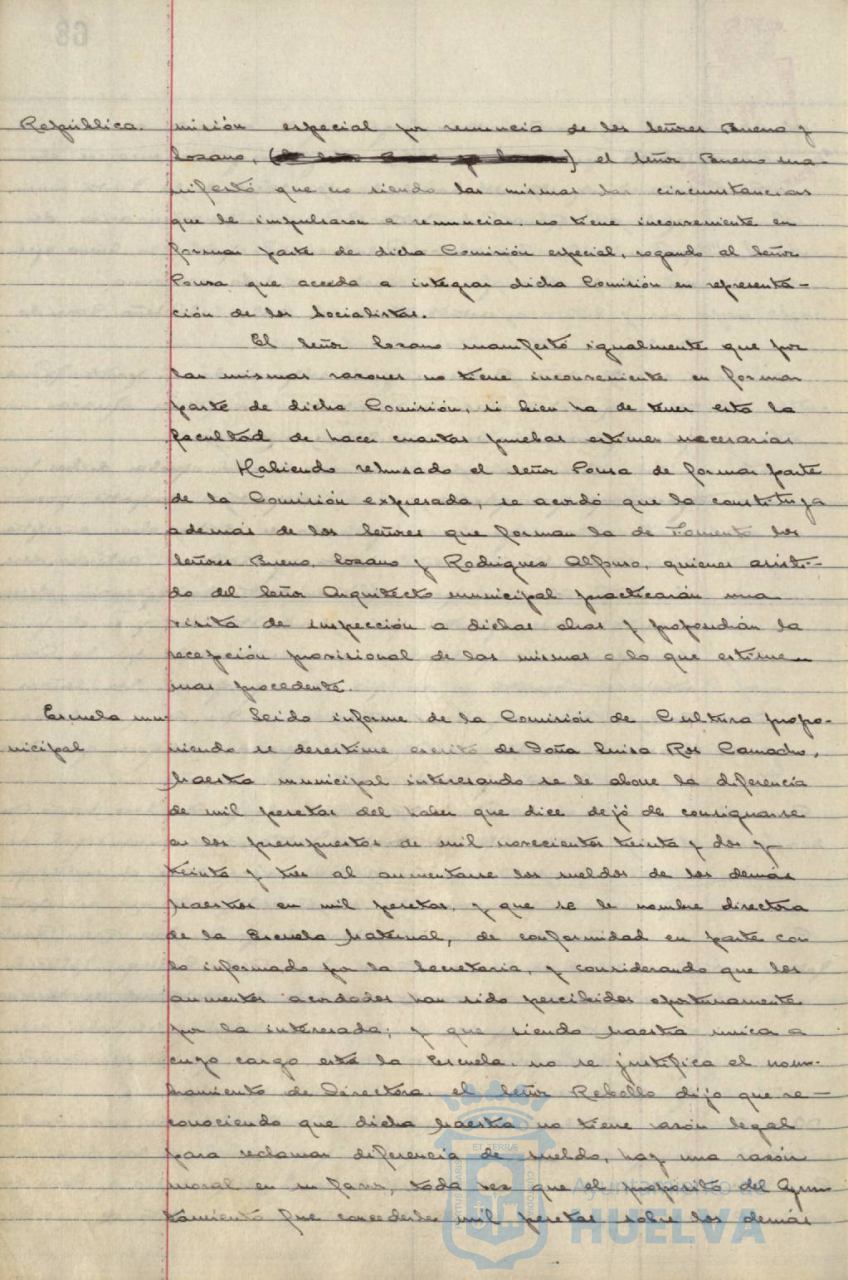 República.
misión especial por renuncia de los señores Bueno y
Lozano, el señor Bueno ma-
nifestó que no siendo las mismas las circunstancias
que le impulsaron a renunciar, no tiene inconveniente en
formar parte de dicha Comisión especial, rogando al señor
Ponsa que acceda a integrar dicha Comisión en representa-
ción de los socialistas.
El señor Lozano manifestó igualmente que por
las mismas razones no tiene inconveniente en formar
parte de dicha Comisión, si bien ha de tener esta la
facultad de hacer cuantas pruebas estimen necesarias
Habiendo rehusado el señor Ponsa de formar parte
de la Comisión expresada, se acordó que la constituya
además de los señores que forman la de Fomento los
señores Bueno, Lozano y Rodriguez Alfonso, quienes asisti-
do del señor Arquitecto municipal practicarán una
visita de inspección a dichas obras y propondrán la
recepción provisional de las mismas o lo que estimen
mas procedente.
Escuela mu-
nicipal
Leido informe de la Comisión de Cultura propo-
niendo se desestime escrito de Doña Luisa Ros Camacho,
Maestra municipal interesando se le abone la diferencia
de mil pesetas del haber que dice dejó de consignarse
en los presupuestos de mil novecientos treinta y dos y
treinta y tres al aumentarse los sueldos de los demás
Maestros en mil pesetas, y que se le nombre directora
de la Escuela Maternal, de conformidad en parte con
lo informado por la Secretaria, y considerando que los
aumentos acordados han sido percibidos oportunamente
por la interesada; y que siendo Maestra unica a
cuyo cargo está la Escuela, no se justifica el nom-
bramiento de Directora, el señor Rebollo dijo que re-
conociendo que dicha Maestra no tiene razón legal
para reclamar diferencia de sueldo, hay una razón
moral en su favor, toda vez que el propósito del Ayun
tamiento fue concederles mil pesetas sobre los demás
Ayuntamiento de
HUELVA